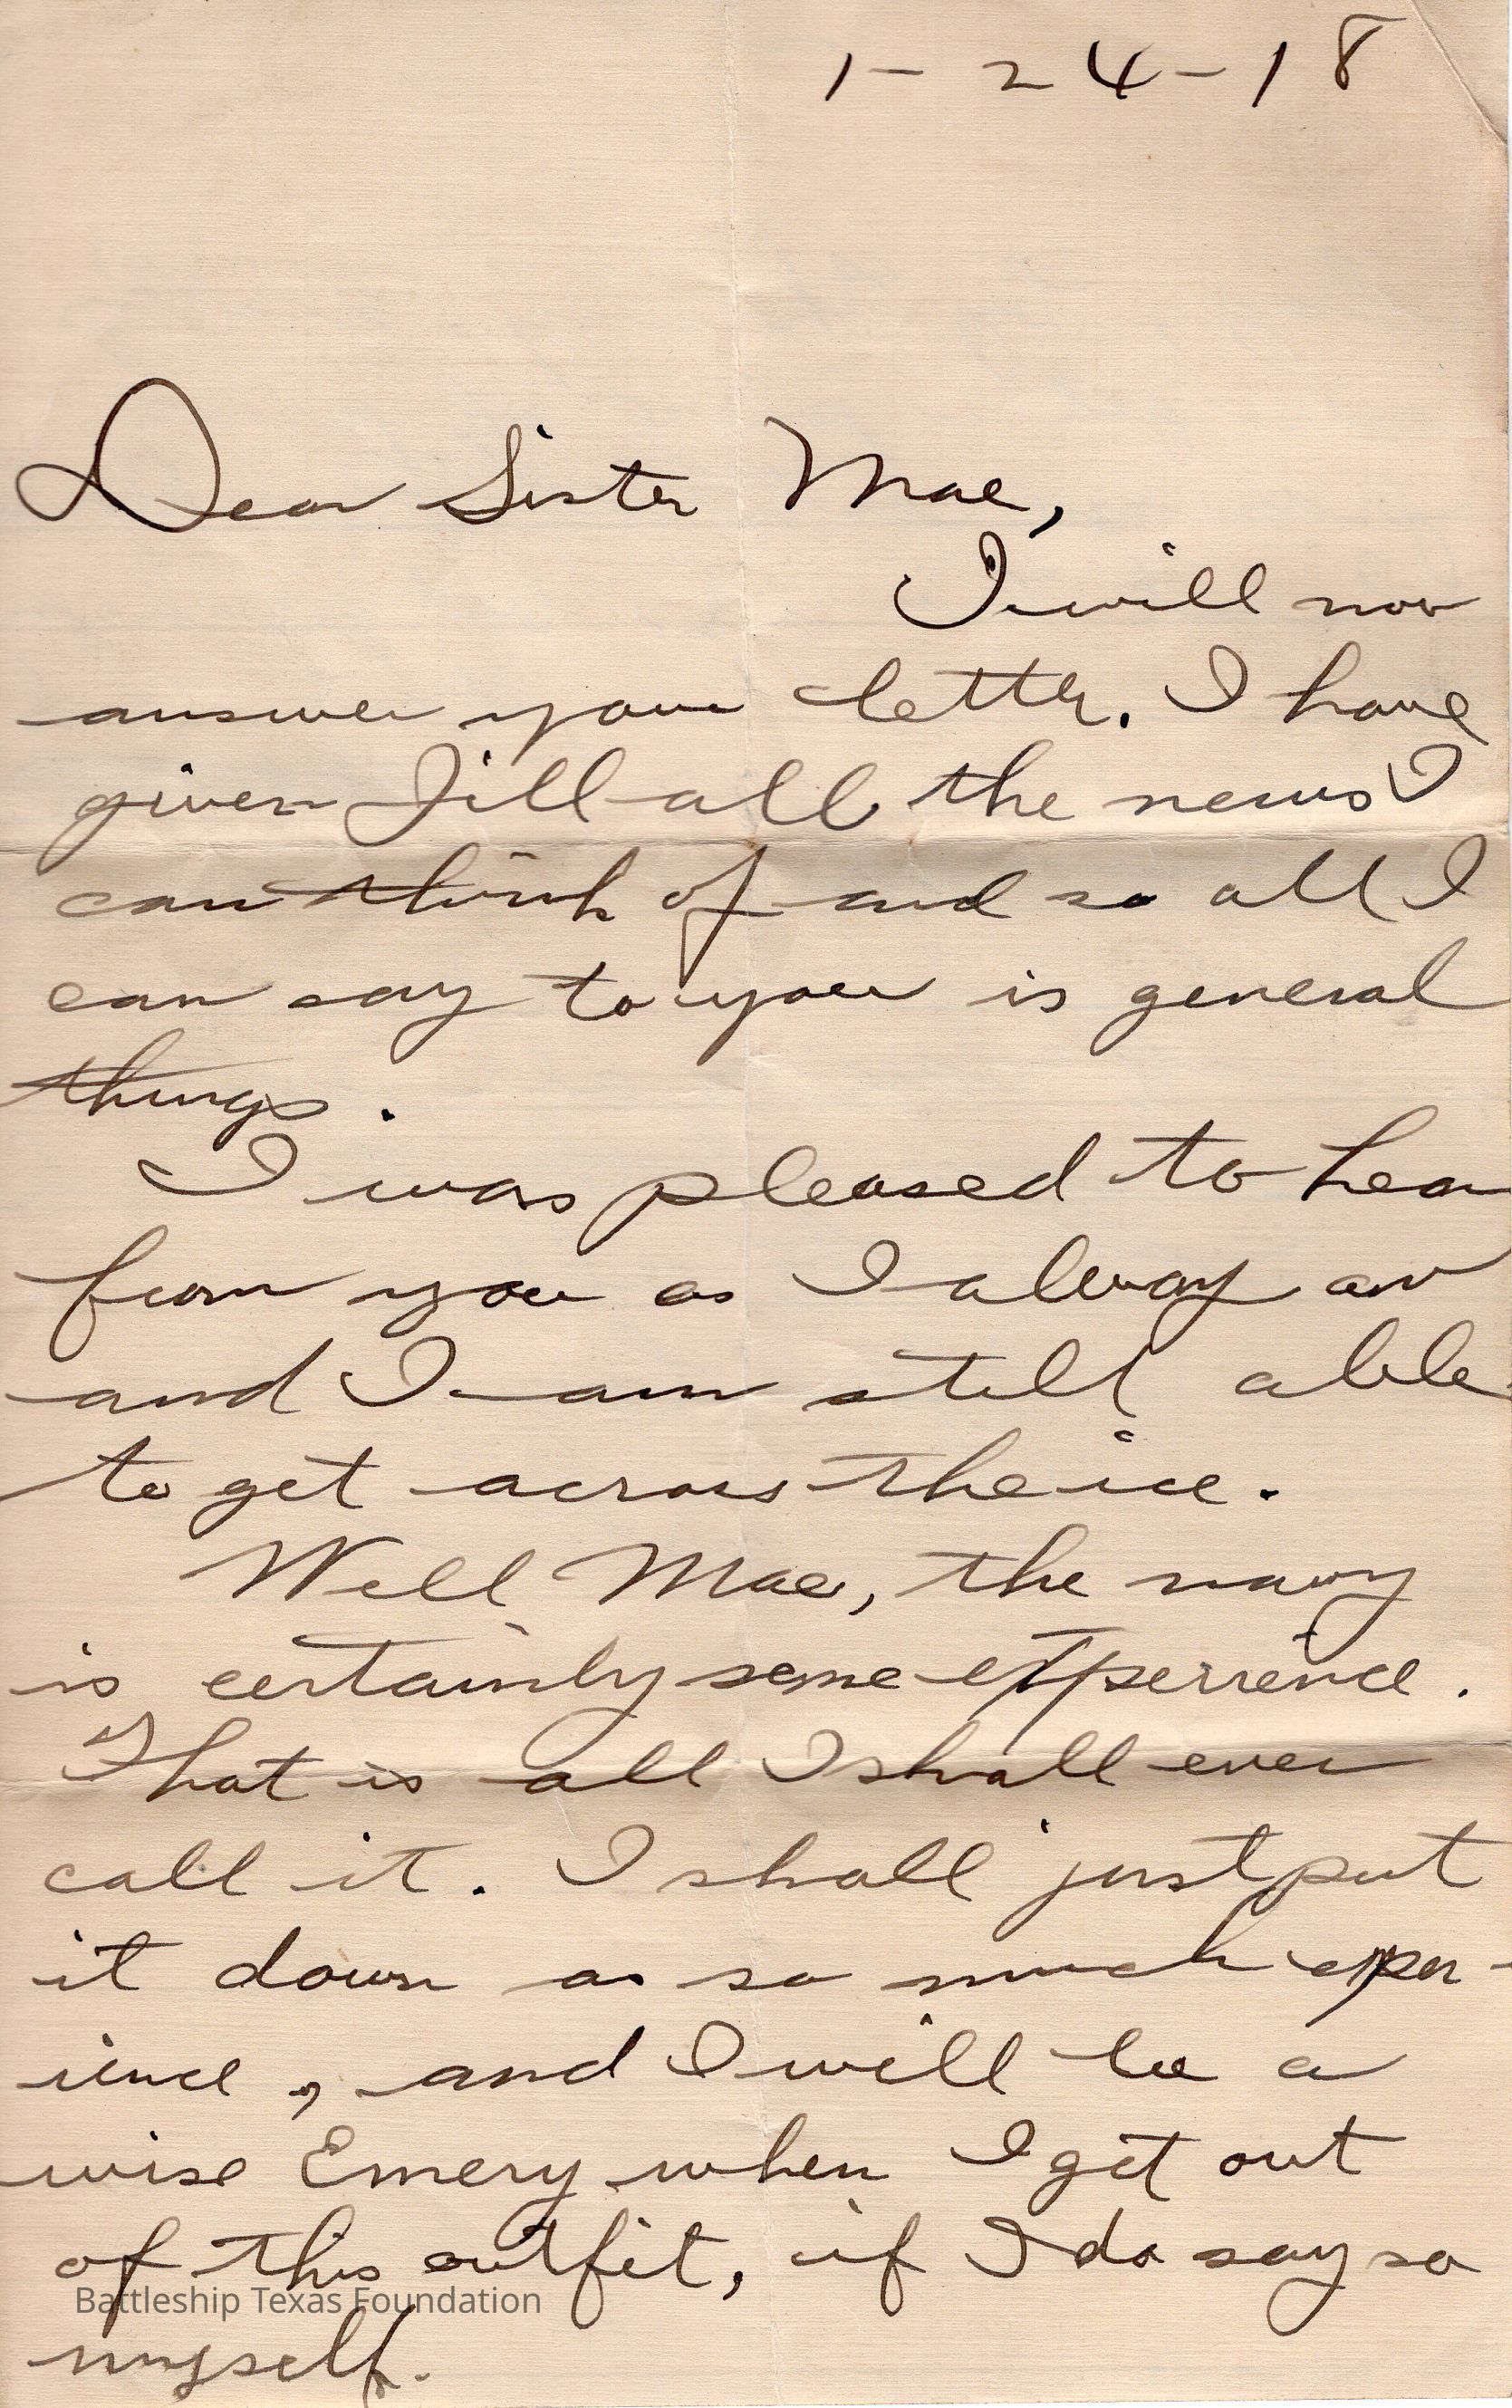 1-24-18
Dear Sister Mae,
I will now
answer your letter. I have
given Jill all the news I
can think of and so all I
can say to you is general
things.
I was pleased to hear
from you as I alway am
and I am still able
to get across the ice.
Well Mae, the navy
is certainly some experience.
That is all I shall ever
call it. I shall just put
it down as so much exper-
ience, and I will be a
wise Emery when I get out
of this outfit, if I do say so
Battleship Texas Foundation
myself.